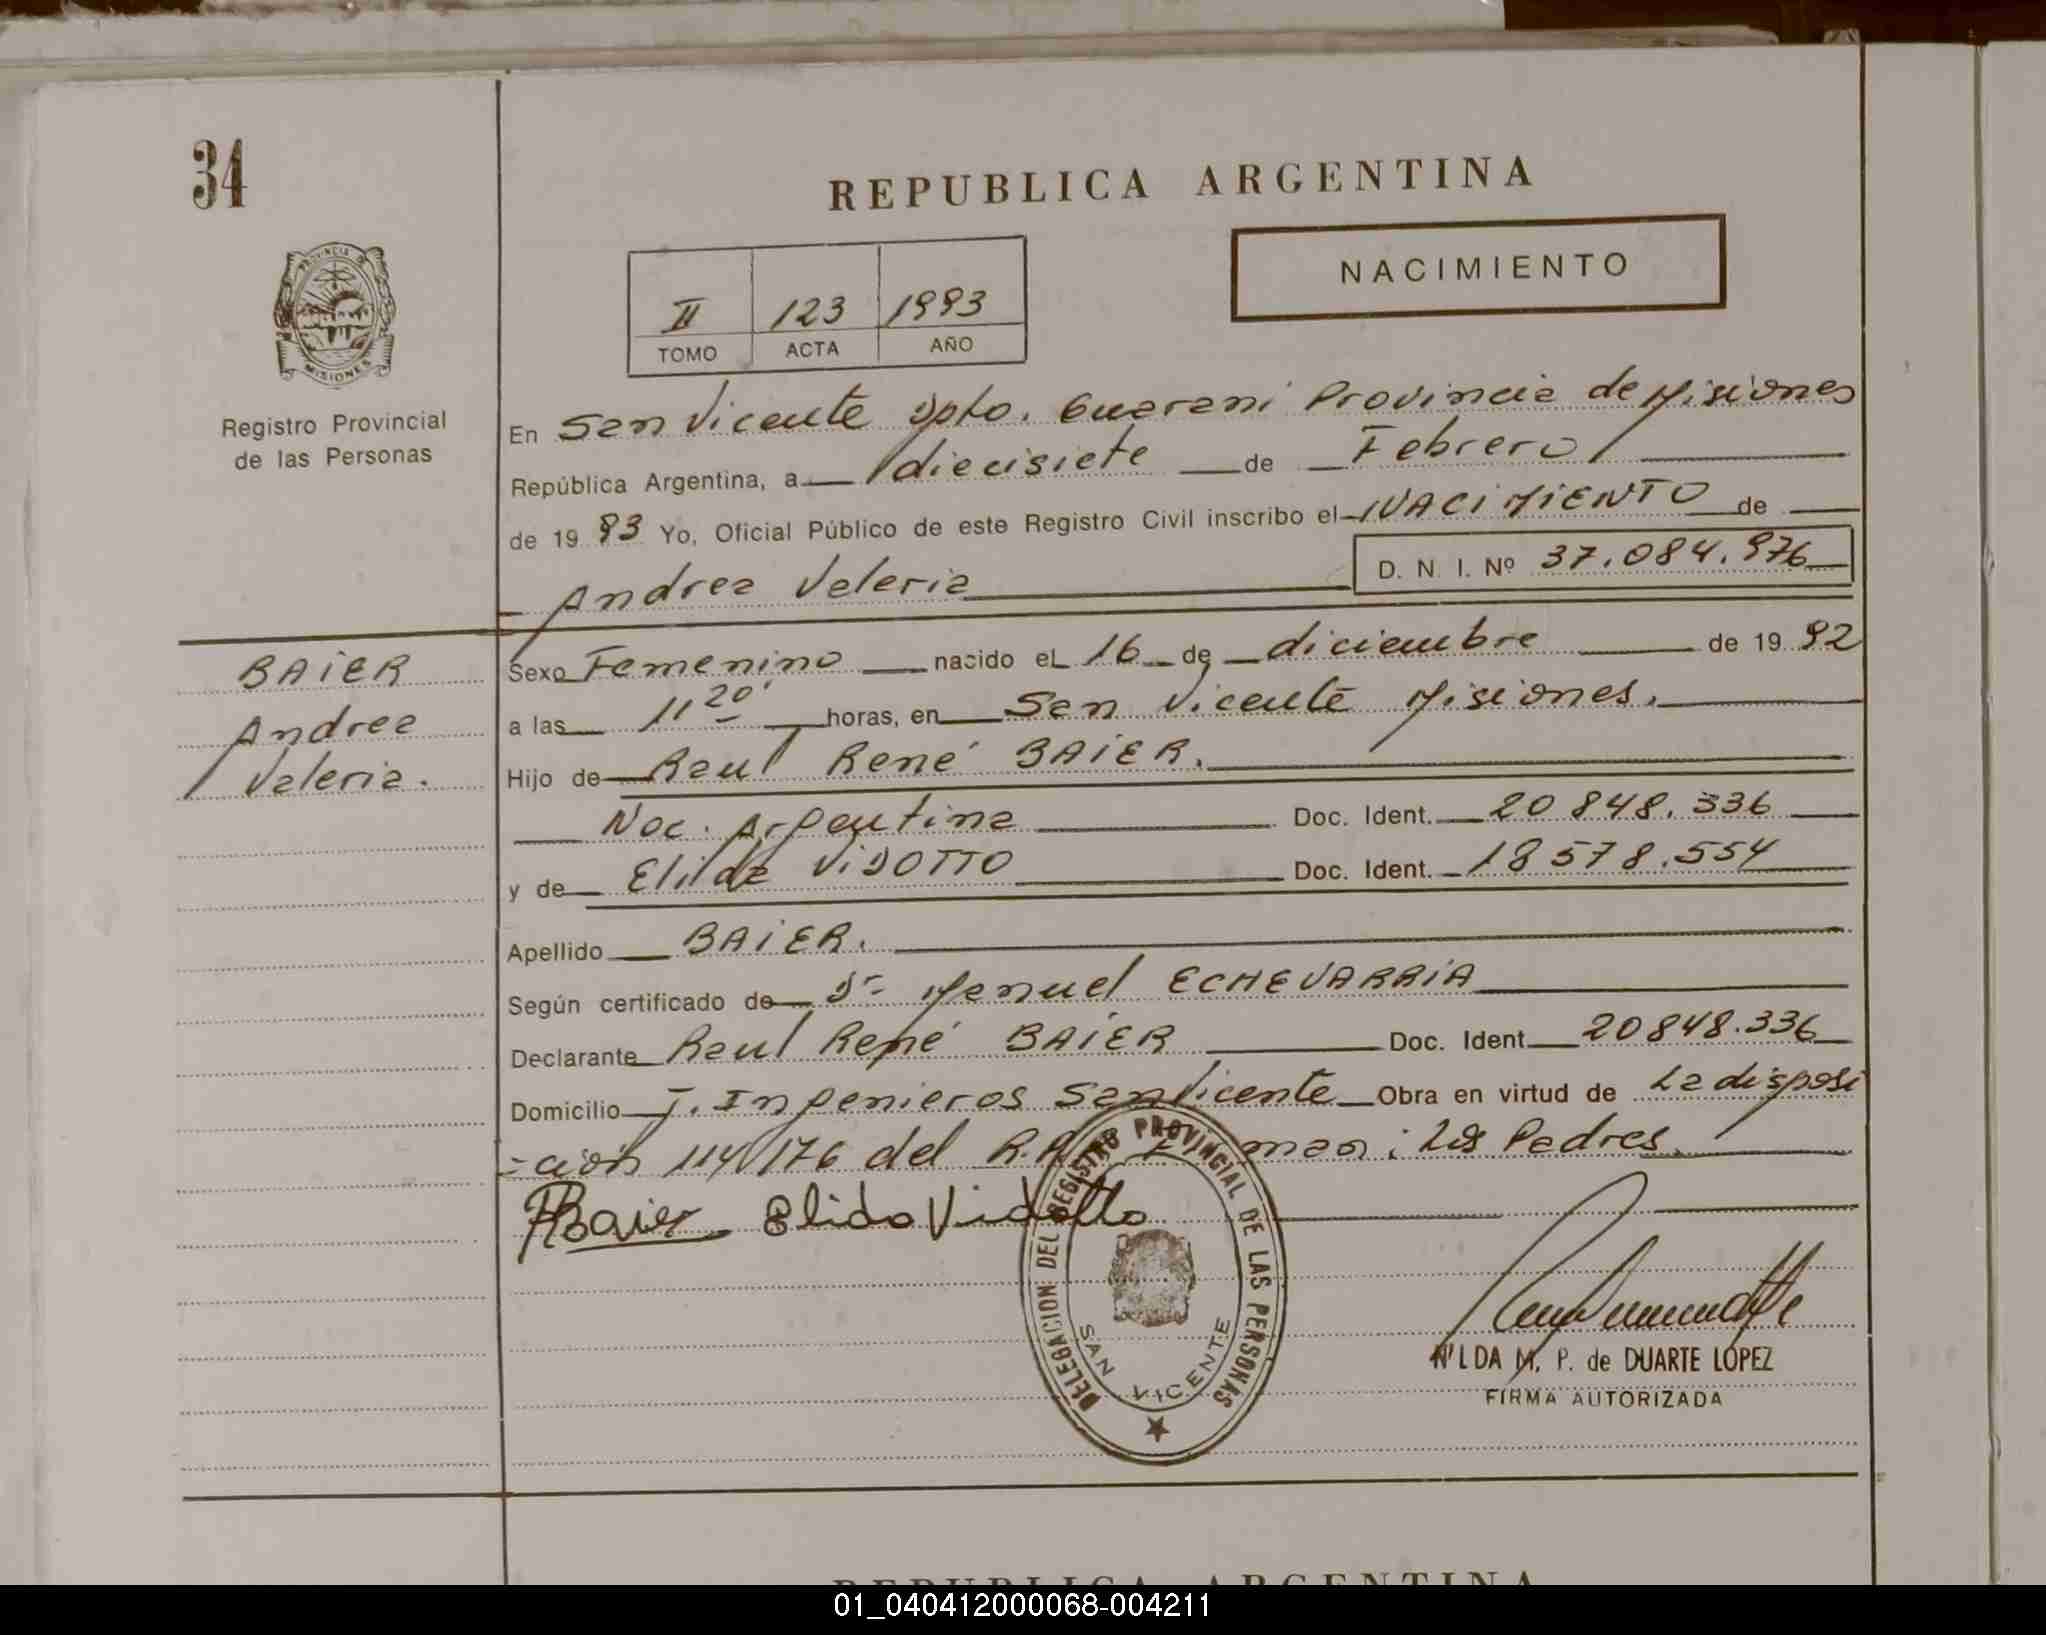 34
REPUBLICA ARGENTINA
NACIMIENTO
II 123 1993
TOMO ACTA AÑO
PROVINCIA DE
MISIONES
Registro Provincial
de las Personas
En San Vicente Dpto. Guarani Provincia de Misiones
República Argentina, a diecisiete de Febrero
de 19 93 Yo, Oficial Público de este Registro Civil inscribo el NACIMIENTO de
D. N. I. Nº 37.084.976
Andrea Valeria
BAIER
Andrea
Valeria.
Sexo Femenino nacido el 16 de diciembre de 19 92
a las 11 20' horas, en San Vicente Misiones.
Hijo de Raul René BAIER.
Nac. Argentina Doc. Ident. 20 848.336
y de Elida VIDOTTO Doc. Ident. 18 578.554
Apellido BAIER.
Según certificado de Dr Manuel ECHEVARRIA
Declarante Raul René BAIER Doc. Ident 20848.336
Domicilio J. Ingenieros San Vicente Obra en virtud de La disposi
-ción 114/176 del los Padres.
RRBaier Elida Vidotto
DELEGACION DEL REGISTRO PROVINCIAL DE LAS PERSONAS
SAN VICENTE
NILDA M. P. de DUARTE LÓPEZ
FIRMA AUTORIZADA
REPUBLICA ARGENTINA
01_040412000068-004211